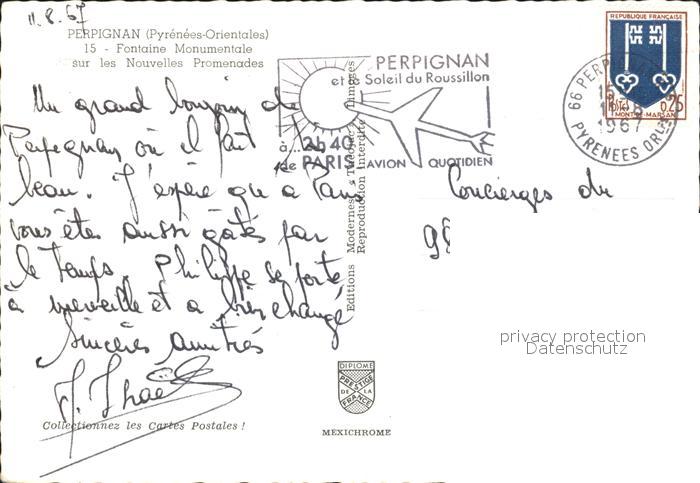 11.8.67
PERPIGNAN (Pyrénées-Orientales)
15 - Fontaine Monumentale
sur les Nouvelles Promenades
Un grand bonjour de
Perpignan où il fait
beau. J'espère qu'à Paris
vous êtes aussi gâtés par
le temps. Philippe se porte
à merveille et a bien changé
Sincères amitiés
Collectionnez les Cartes Postales !
PERPIGNAN
et le Soleil du Roussillon
à... 2h40
de PARIS
AVION QUOTIDIEN
Editions Modernes « Théojac » Limoges
Reproduction Interdite
DIPLOME
PRESTIGE
DE LA
FRANCE
MEXICHROME
REPUBLIQUE FRANÇAISE
POSTES 0,25
MONT-DE-MARSAN
66 PERPIGNAN
1967
PYRENEES ORLES
Concierges du
privacy protection
Datenschutz